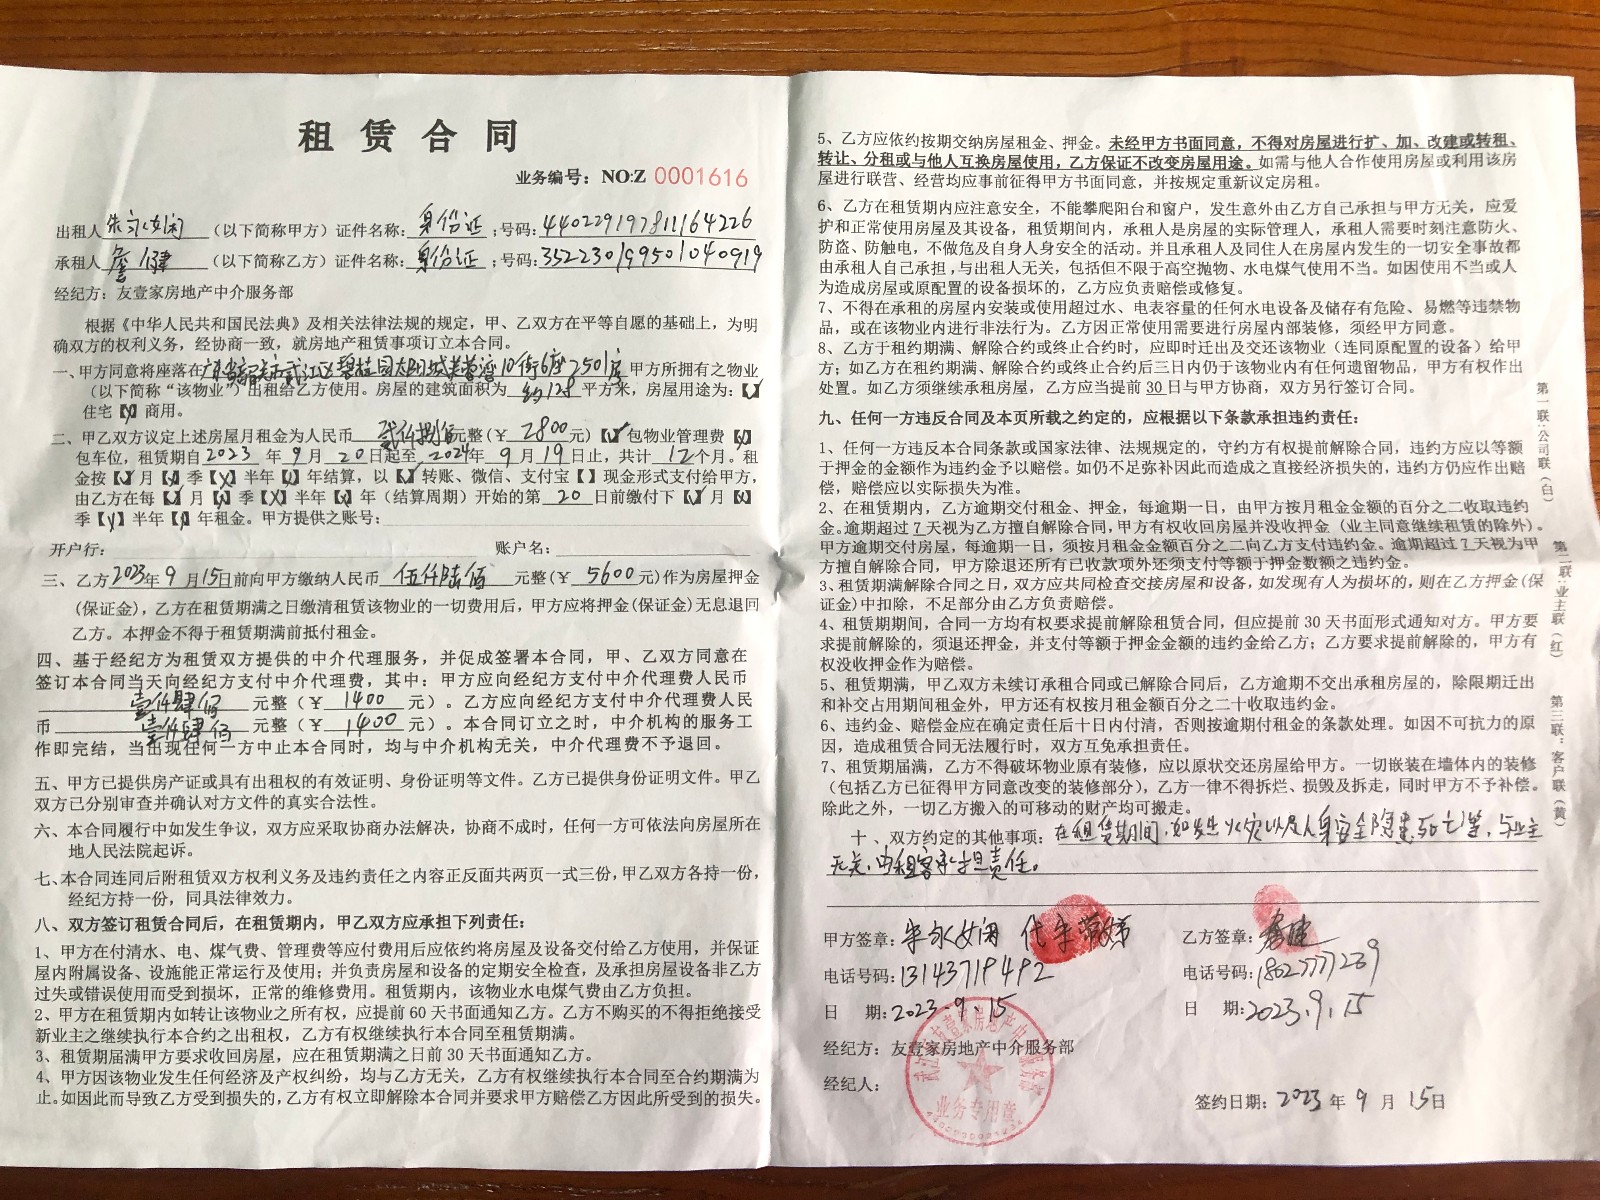 租赁合同
业务编号：NO:Z 0001616
出租人 朱永女闲 （以下简称甲方）证件名称：身份证；号码：440229197811164226
承租人 詹健 （以下简称乙方）证件名称：身份证；号码：352230199501040919
经纪方：友壹家房地产中介服务部
根据《中华人民共和国民法典》及相关法律法规的规定，甲、乙双方在平等自愿的基础上，为明
确双方的权利义务，经协商一致，就房地产租赁事项订立本合同。
一、甲方同意将座落在广东省韶关市武江区碧桂园太阳城芙蓉湾10街6座2501房 甲方所拥有之物业
（以下简称“该物业”）出租给乙方使用。房屋的建筑面积为 约128 平方米，房屋用途为：【✓】
住宅【×】商用。
二、甲乙双方议定上述房屋月租金为人民币 贰仟捌佰 元整（￥ 2800 元）【✓】包物业管理费【×】
包车位，租赁期自2023 年 9 月 20 日起至 2024年 9 月 19 日止，共计 12 个月。租
金按【✓】月【×】季【×】半年【×】年结算，以【✓】转账、微信、支付宝【 】现金形式支付给甲方，
由乙方在每【✓】月【×】季【×】半年【×】年（结算周期）开始的第 20 日前缴付下【✓】月【×】
季【×】半年【×】年租金。甲方提供之账号：
开户行： 账户名：
三、乙方2023年 9 月 15日前向甲方缴纳人民币 伍仟陆佰 元整（￥ 5600 元）作为房屋押金
（保证金），乙方在租赁期满之日缴清租赁该物业的一切费用后，甲方应将押金（保证金）无息退回
乙方。本押金不得于租赁期满前抵付租金。
四、基于经纪方为租赁双方提供的中介代理服务，并促成签署本合同，甲、乙双方同意在
签订本合同当天向经纪方支付中介代理费，其中：甲方应向经纪方支付中介代理费人民币
壹仟肆佰 元整（￥ 1400 元）。乙方应向经纪方支付中介代理费人民
币 壹仟肆佰 元整（￥ 1400 元）。本合同订立之时，中介机构的服务工
作即完结，当出现任何一方中止本合同时，均与中介机构无关，中介代理费不予退回。
五、甲方已提供房产证或具有出租权的有效证明、身份证明等文件。乙方已提供身份证明文件。甲乙
双方已分别审查并确认对方文件的真实合法性。
六、本合同履行中如发生争议，双方应采取协商办法解决，协商不成时，任何一方可依法向房屋所在
地人民法院起诉。
七、本合同连同后附租赁双方权利义务及违约责任之内容正反面共两页一式三份，甲乙双方各持一份，
经纪方持一份，同具法律效力。
八、双方签订租赁合同后，在租赁期内，甲甲乙双方应承担下列责任：
1、甲方在付清水、电、煤气费、管理费等应付费用后应依约将房屋及设备交付给乙方使用，并保证
屋内附属设备、设施能正常运行及使用；并负责房屋和设备的定期安全检查，及承担房屋设备非乙方
过失或错误使用而受到损坏，正常的维修费用。租赁期内，该物业水电煤气费由乙方负担。
2、甲方在租赁期内如转让该物业之所有权，应提前60天书面通知乙方。乙方不购买的不得拒绝接受
新业主之继续执行本合约之出租权，乙方有权继续执行本合同至租赁期满。
3、租赁期届满甲方要求收回房屋，应在租赁期满之日前30天书面通知乙方。
4、甲方因该物业发生任何经济及产权纠纷，均与乙方无关，乙方有权继续执行本合同至合约期满为
止。如因此而导致乙方受到损失的，乙方有权立即解除本合同并要求甲方赔偿乙方因此所受到的损失。
5、乙方应依约按期交纳房屋租金、押金。未经甲方书面同意，不得对房屋进行扩、加、改建或转租、
转让、分租或与他人互换房屋使用，乙方保证不改变房屋用途。如需与他人合作使用房屋或利用该房
屋进行联营、经营均应事前征得甲方书面同意，并按规定重新议定房租。
6、乙方在租赁期内应注意安全，不能攀爬阳台和窗户，发生意外由乙方自己承担与甲方无关，应爱
护和正常使用房屋及其设备，租赁期间内，承租人是房屋的实际管理人，承租人需要时刻注意防火、
防盗、防触电，不做危及自身人身安全的活动。并且承租人及同住人在房屋内发生的一切安全事故都
由承租人自己承担，与出租人无关，包括但不限于高空抛物、水电煤气使用不当。如因使用不当或人
为造成房屋或原配置的设备损坏的，乙方应负责赔偿或修复。
7、不得在承租的房屋内安装或使用超过水、电表容量的任何水电设备及储存有危险、易燃等违禁物
品，或在该物业内进行非法行为。乙方因正常使用需要进行房屋内部装修，须经甲方同意。
8、乙方于租约期满、解除合约或终止合约时，应即时迁出及交还该物业（连同原配置的设备）给甲
方；如乙方在租约期满、解除合约或终止合约后三日内仍于该物业内有任何遗留物品，甲方有权作出
处置。如乙方须继续承租房屋，乙方应当提前30日与甲方协商，双方另行签订合同。
九、任何一方违反合同及本页所载之约定的，应根据以下条款承担违约责任：
1、任何一方违反本合同条款或国家法律、法规规定的，守约方有权提前解除合同，违约方应以等额
于押金的金额作为违约金予以赔偿。如仍不足弥补因此而造成之直接经济损失的，违约方仍应作出赔
偿，赔偿应以实际损失为准。
2、在租赁期内，乙方逾期交付租金、押金，每逾期一日，由甲方按月租金金额的百分之二收取违约
金。逾期超过7天视为乙方擅自解除合同，甲方有权收回房屋并没收押金（业主同意继续租赁的除外）。
甲方逾期交付房屋，每逾期一日，须按月租金金额百分之二向乙方支付违约金。逾期超过7天视为甲
方擅自解除合同，甲方除退还所有已收款项外还须支付等额于押金数额之违约金。
3、租赁期满解除合同之日，双方应共同检查交接房屋和设备，如发现有人为损坏的，则在乙方押金（保
证金）中扣除，不足部分由乙方负责赔偿。
4、租赁期期间，合同一方均有权要求提前解除租赁合同，但应提前30天书面形式通知对方。甲方要
求提前解除的，须退还押金，并支付等额于押金金额的违约金给乙方；乙方要求提前解除的，甲方有
权没收押金作为赔偿。
5、租赁期满，甲甲乙双方未续订承租合同或已解除合同后，乙方逾期不交出承租房屋的，除限期迁出
和补交占用期间租金外，甲方还有权按月租金额百分之二十收取违约金。
6、违约金、赔偿金应在确定责任后十日内付清，否则按逾期付租金的条款处理。如因不可抗力的原
因，造成租赁合同无法履行时，双方互免承担责任。
7、租赁期届满，乙方不得破坏物业原有装修，应以原状交还房屋给甲方。一切嵌装在墙体内的装修
（包括乙方已征得甲方同意改变的装修部分），乙方一律不得拆烂、损毁及拆走，同时甲方不予补偿。
除此之外，一切乙方搬入的可移动的财产均可搬走。
十、双方约定的其他事项：在租赁期间，如发生火灾以及人身安全隐患死亡等，与业主
无关，由租客承担责任。
甲方签章：朱永女闲 代 朱 娣
电话号码：13143719492
日 期：2023.9.15
乙方签章：詹健
电话号码：18027777239
日 期：2023.9.15
经纪方：友壹家房地产中介服务部
经纪人：
业务专用章
签约日期：2023 年 9 月 15日
第一联：公司联（白）
第二联：业主联（红）
第三联：客户联（黄）